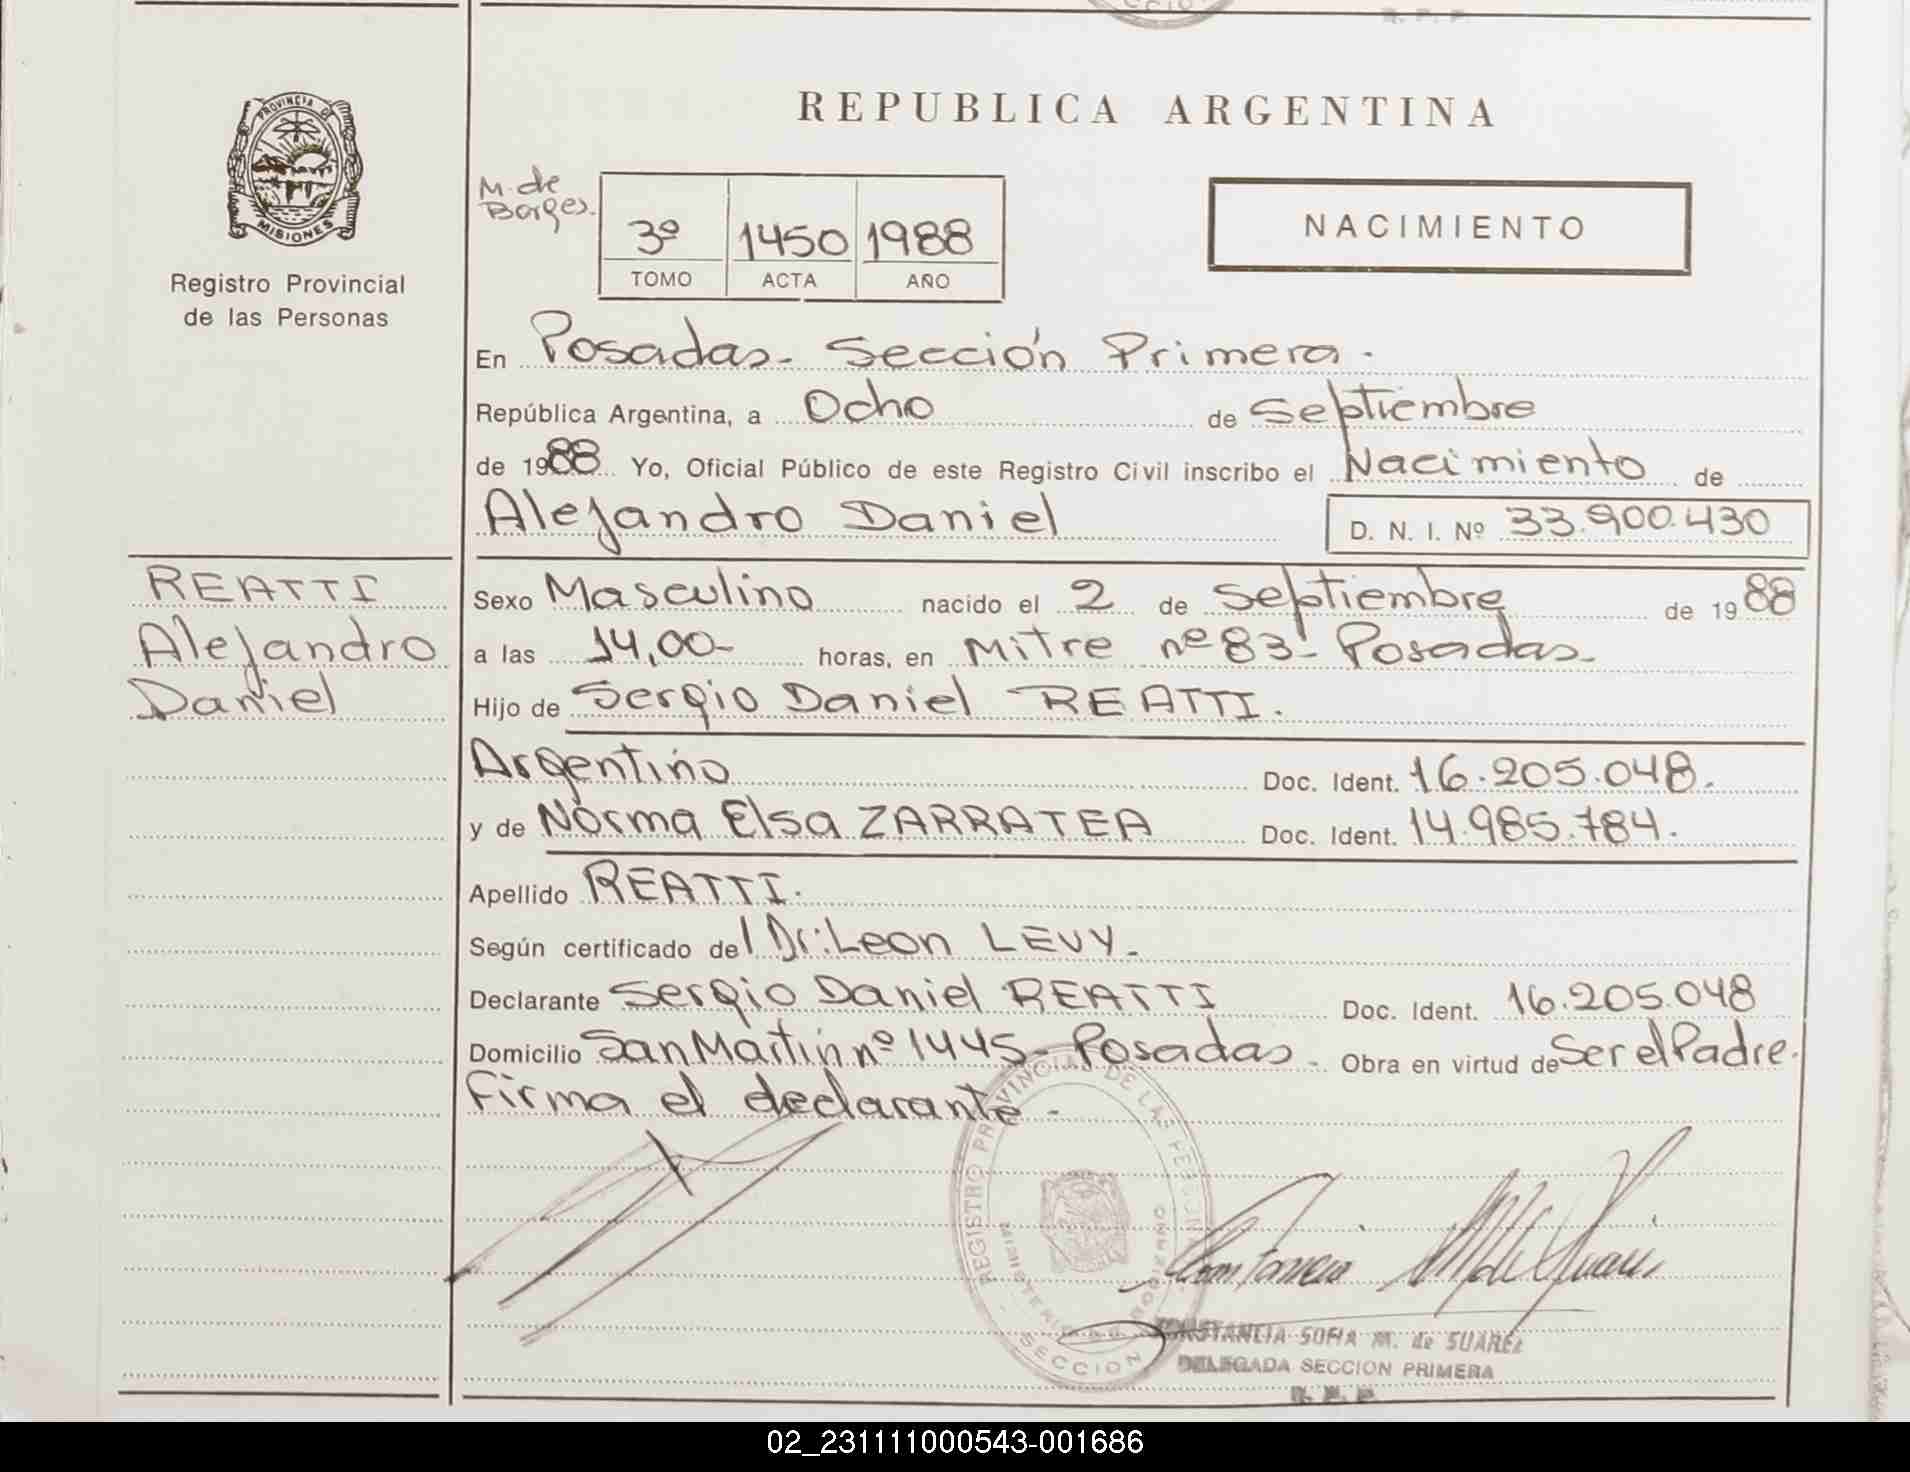 PROVINCIA DE
MISIONES
Registro Provincial
de las Personas
REPUBLICA ARGENTINA
M. de
Borges.
3º 1450 1988
TOMO ACTA AÑO
NACIMIENTO
En Posadas - Sección Primera.
República Argentina, a Ocho de Septiembre
de 1988 Yo, Oficial Público de este Registro Civil inscribo el Nacimiento de
Alejandro Daniel D. N. I. Nº 33.900.430
REATTI
Alejandro
Daniel
Sexo Masculino nacido el 2 de Septiembre de 1988
a las 14,00- horas, en Mitre nº 83- Posadas-
Hijo de Sergio Daniel REATTI.
Argentino Doc. Ident. 16.205.048.
y de Norma Elsa ZARRATEA Doc. Ident. 14.985.784.
Apellido REATTI.
Según certificado del Dr: Leon LEVY-
Declarante Sergio Daniel REATTI Doc. Ident. 16.205.048
Domicilio San Martin nº 1445- Posadas- Obra en virtud de Ser el Padre.
Firma el declarante-
REGISTRO PROVINCIAL DE LAS PERSONAS
MINISTERIO GOBIERNO
SECCION
CONSTANCIA SOFIA M. de SUAREZ
DELEGADA SECCION PRIMERA
R. P. P.
02_231111000543-001686